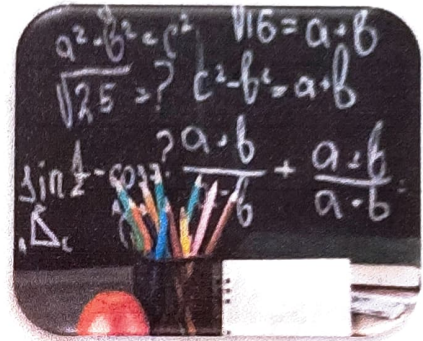 a² - b² = c² √16 = a + b
√25 = ? c² - b² = a + b
sin ½ - cos ? a + b / a - b + a + b / a - b =